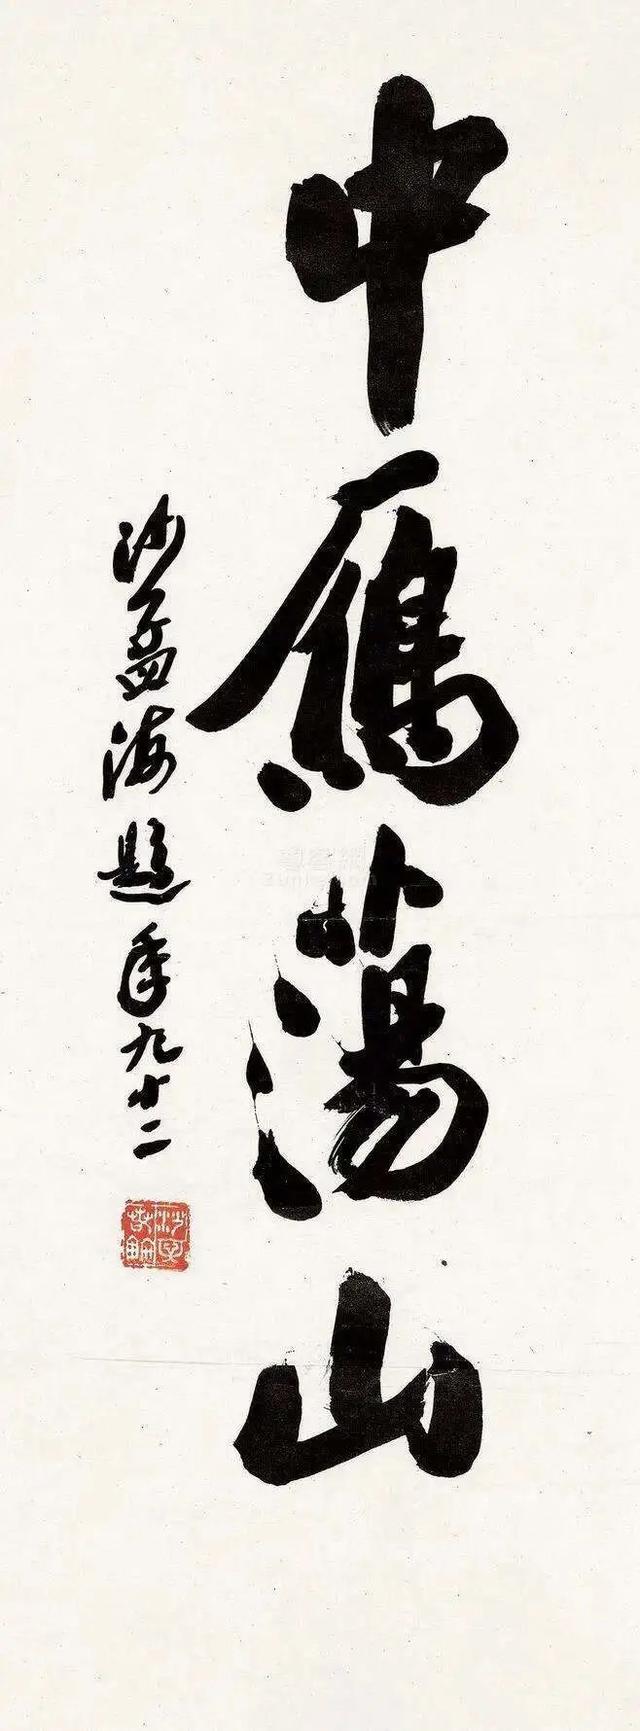 中雁蕩山
沙孟海題年九十二